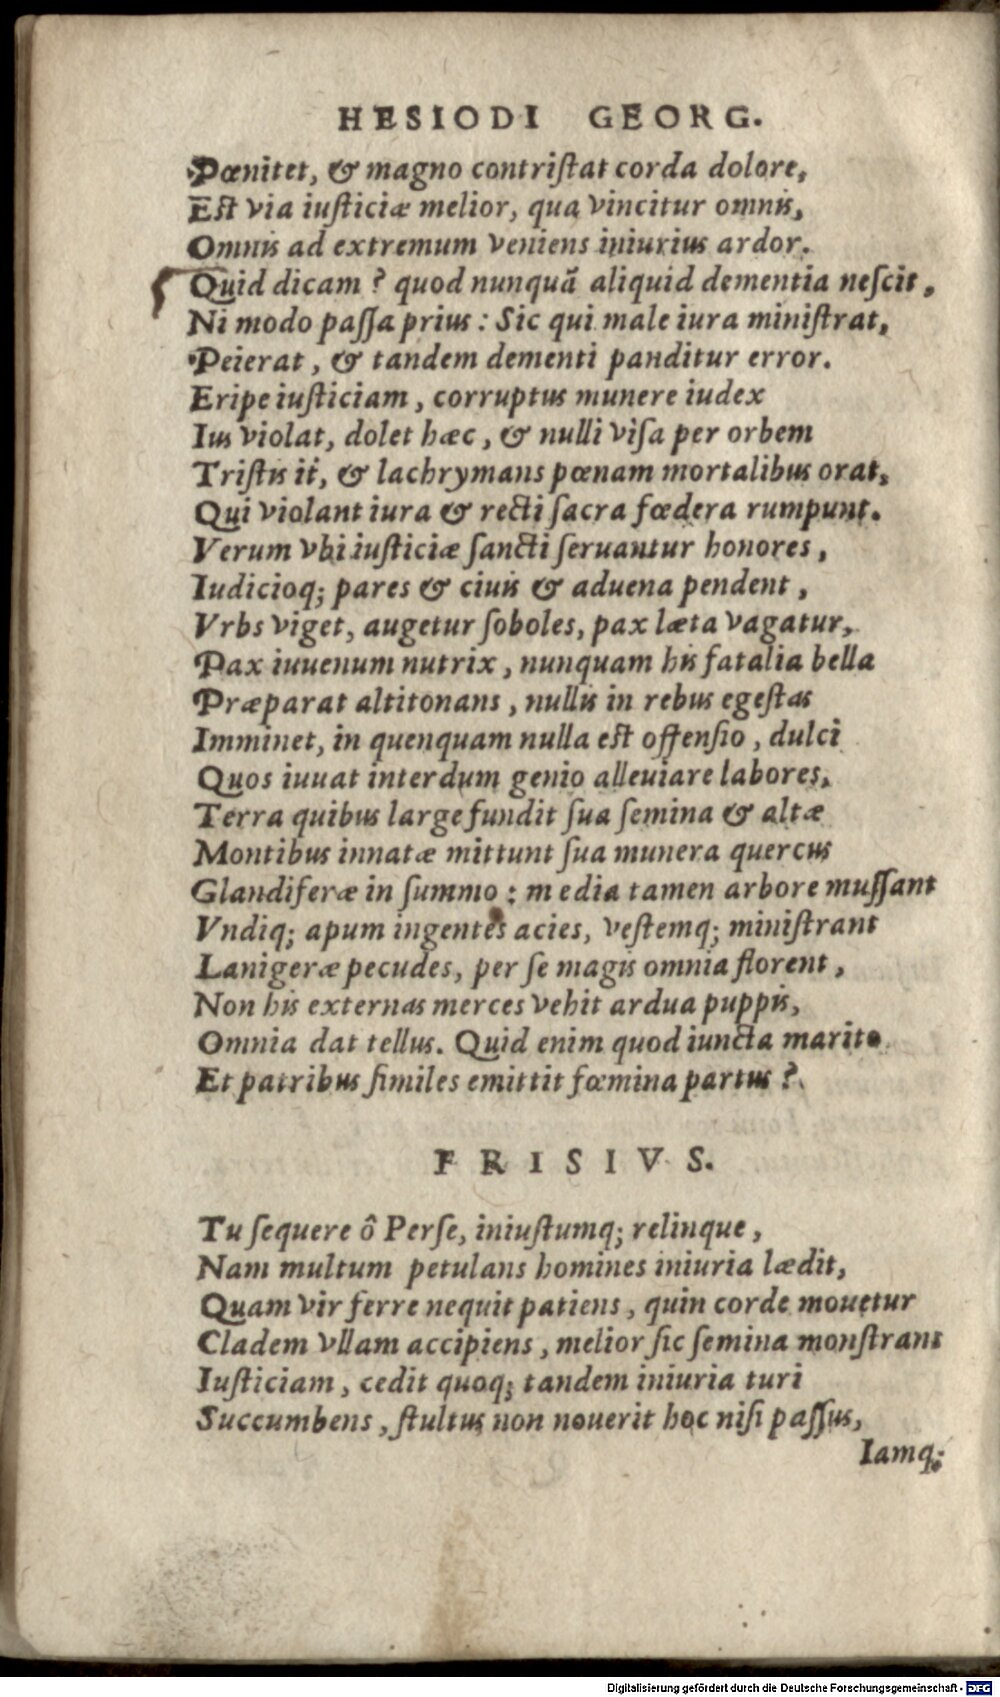 HESIODI GEORG.
Pœnitet, & magno contriſtat corda dolore,
Eſt via iuſticiæ melior, qua vincitur omnis,
Omnis ad extremum veniens iniurius ardor.
Quid dicam? quod nunquã aliquid dementia neſcit,
Ni modo paſſa prius: Sic qui male iura miniſtrat,
Peierat, & tandem dementi panditur error.
Eripe iuſticiam, corruptus munere iudex
Ius violat, dolet hæc, & nulli viſa per orbem
Triſtis it, & lachrymans pœnam mortalibus orat,
Qui violant iura & recti ſacra fœdera rumpunt.
Verum vbi iuſticiæ ſancti ſeruantur honores,
Iudicioq; pares & ciuis & aduena pendent,
Vrbs viget, augetur ſoboles, pax læta vagatur,
Pax iuuenum nutrix, nunquam his fatalia bella
Præparat altitonans, nullis in rebus egeſtas
Imminet, in quenquam nulla eſt offenſio, dulci
Quos iuuat interdum genio alleuiare labores,
Terra quibus large fundit ſua ſemina & altæ
Montibus innatæ mittunt ſua munera quercus
Glandiferæ in ſummo: media tamen arbore muſſant
Vndiq; apum ingentes acies, veſtemq; miniſtrant
Lanigeræ pecudes, per ſe magis omnia florent,
Non his externas merces vehit ardua puppis,
Omnia dat tellus. Quid enim quod iuncta marito
Et patribus ſimiles emittit fœmina partus?
FRISIVS.
Tu ſequere ô Perſe, iniuſtumq; relinque,
Nam multum petulans homines iniuria lædit,
Quam vir ferre nequit patiens, quin corde mouetur
Cladem vllam accipiens, melior ſic ſemina monſtrans
Iuſticiam, cedit quoq; tandem iniuria turi
Succumbens, ſtultus non nouerit hoc niſi paſſus,
Iamq;
Digitalisierung gefördert durch die Deutsche Forschungsgemeinschaft - DFG